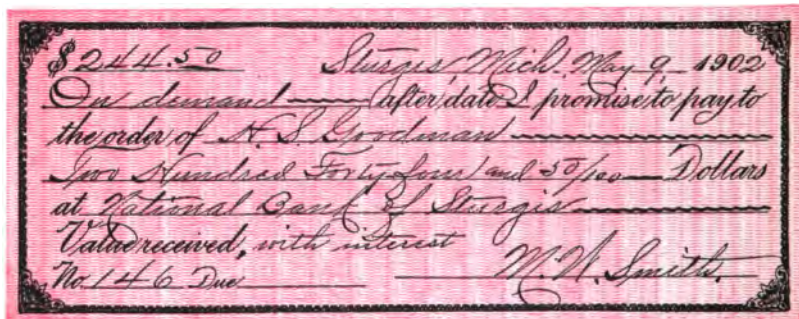 $244.50 Sturgis Mich. May 9, 1902
On demand after date I promise to pay to
the order of H. S. Goodman
Two Hundred Forty-four and 50/100 Dollars
at National Bank of Sturgis
Value received, with interest
No. 146 Due M. W. Smith.